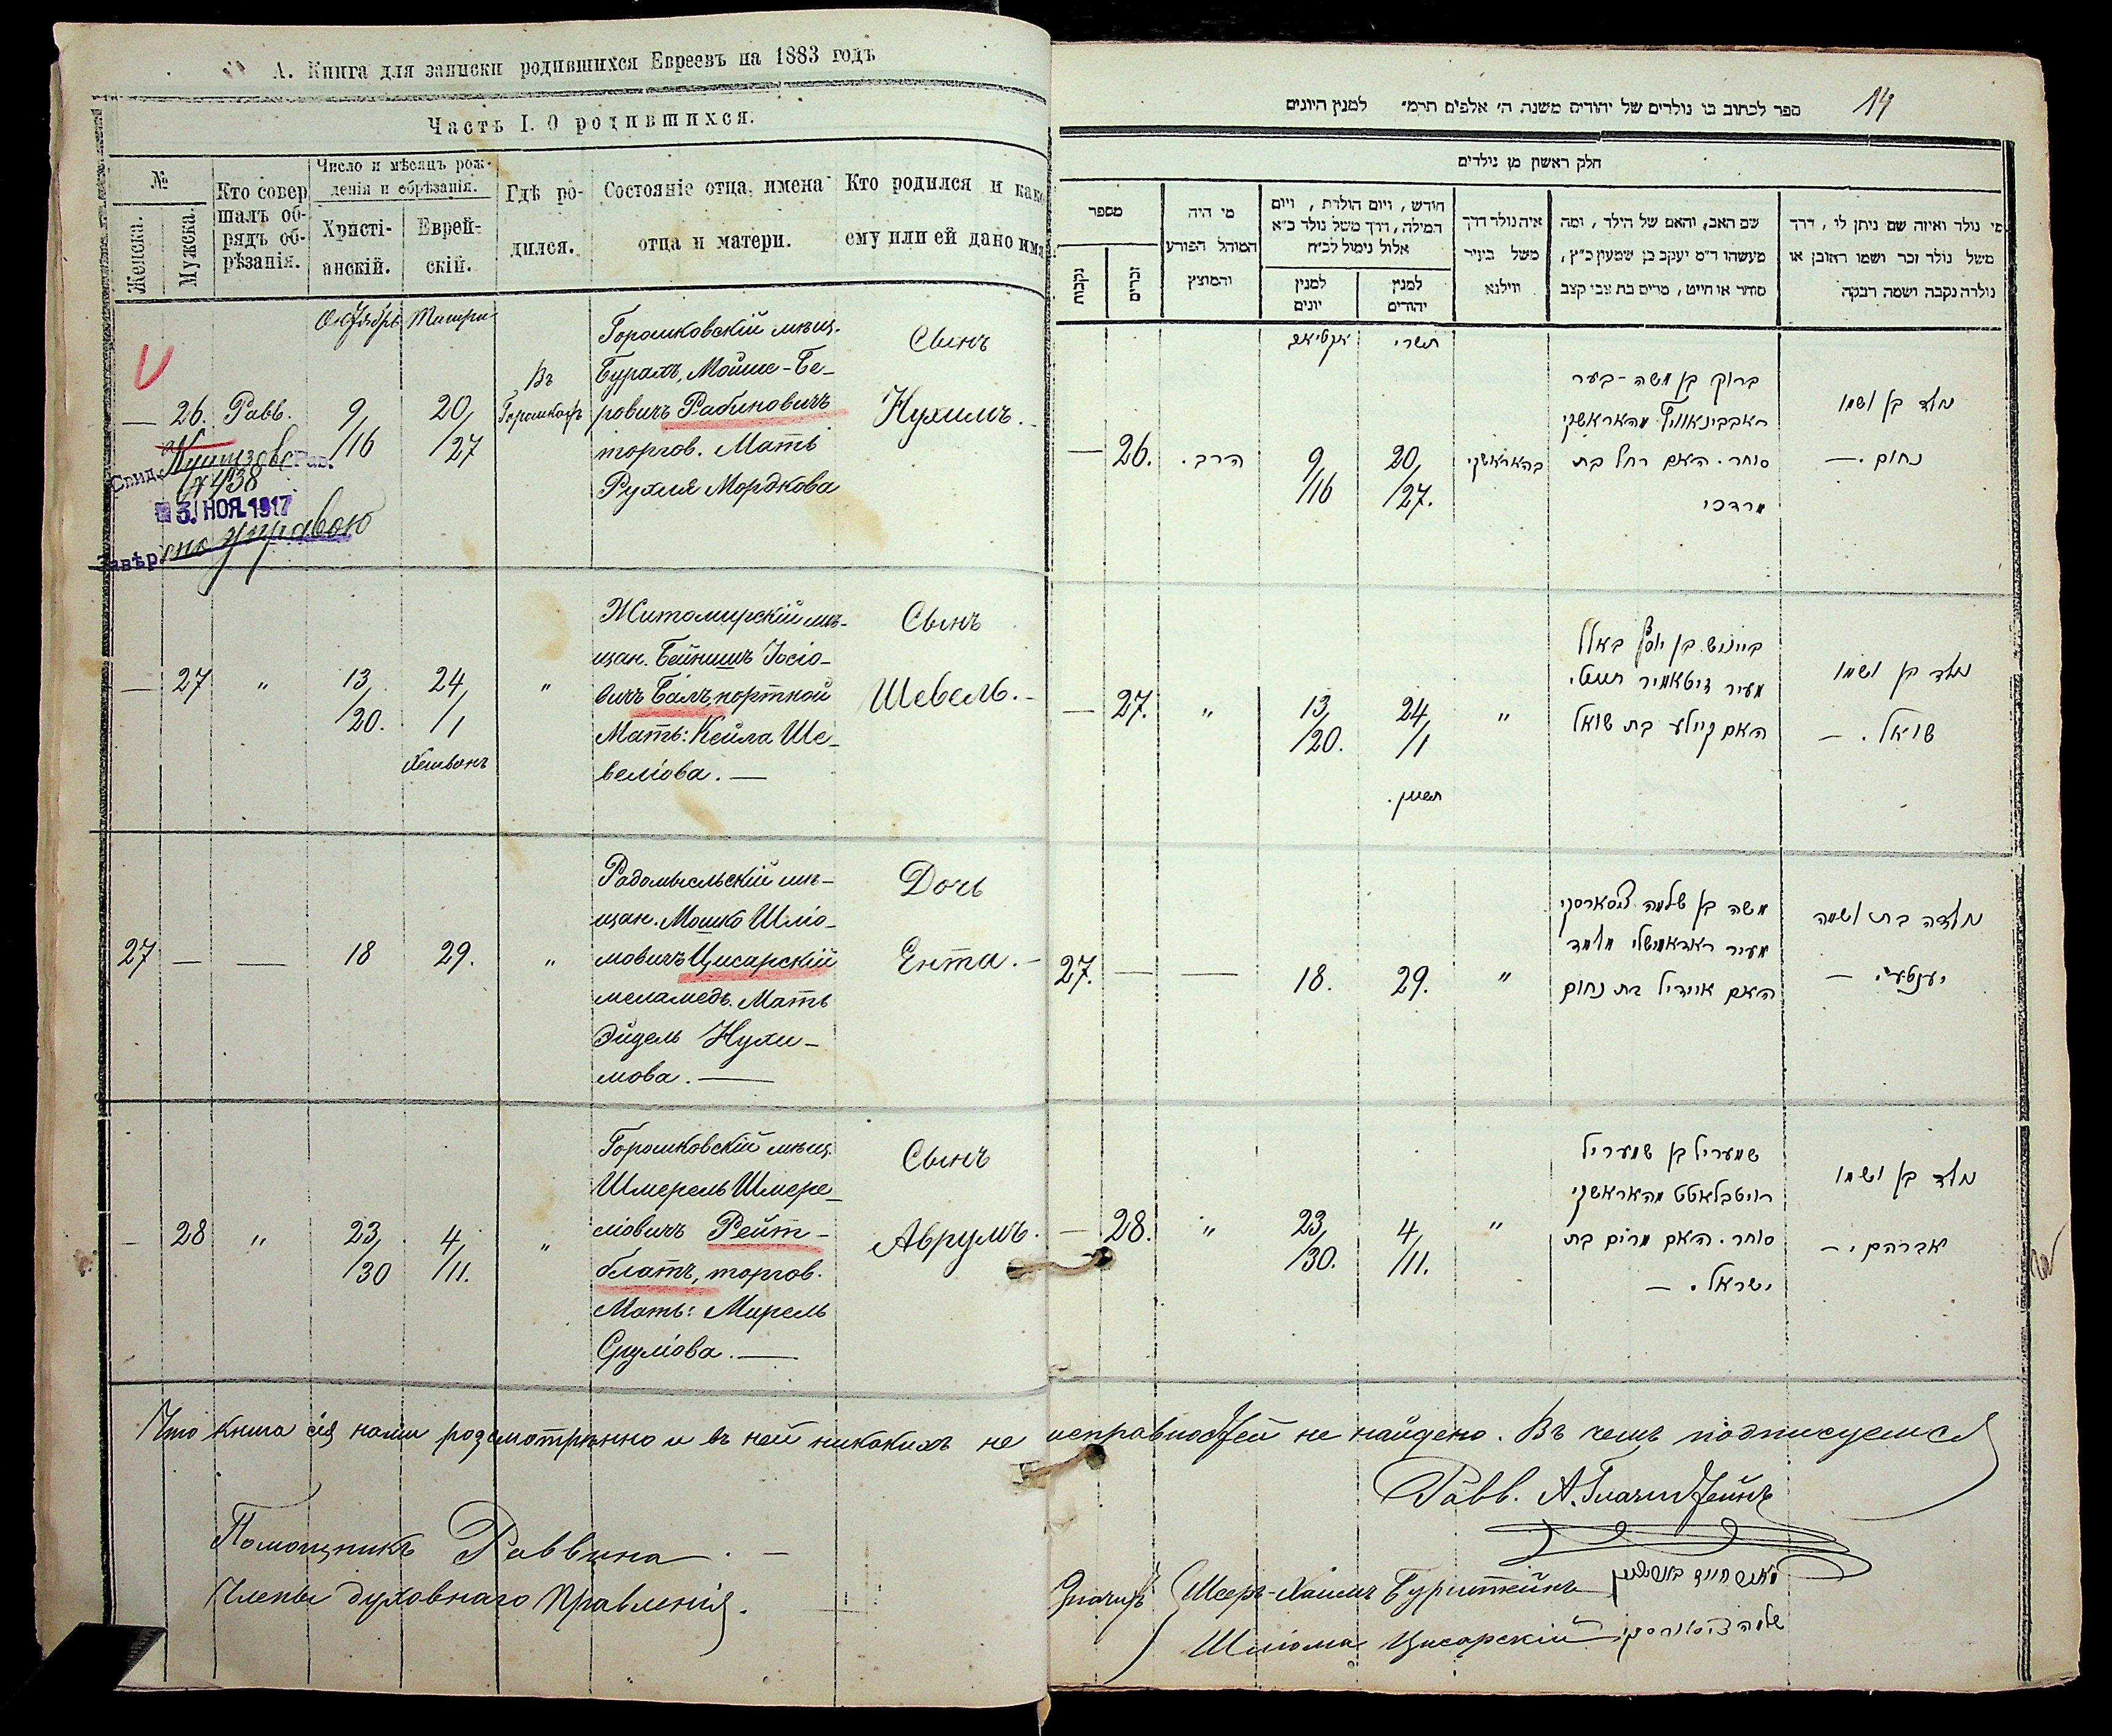 А. Книга для записки родившихся Евреевъ на 1883 годъ
Часть I. О родившихся.
№
Женска.
Мужеска.
Кто совер
шалъ об-
рядъ об-
рѣзанія.
Число и мѣсяцъ рож-
денія и обрѣзанія.
Христі-
анскій.
Еврей-
скій.
Гдѣ ро-
дился.
Состояніе отца, имена
отца и матери.
Кто родился и како
ему или ей дано имя
Октябрь Тишри
— 26. Равв. 9/16 20/27
Въ
Горошкахъ
Горошковскій мѣщ.
Бурахъ, Мойше-Бе-
ровичъ Рабиновичъ
торгов. Мать
Рухля Мордкова
Сынъ
Нухимъ.
Свид. Рав.
№ 438
3. НОЯ. 1917
Завѣр. управою
— 27 " 13/20. 24/1 "
Хешвонъ
Житомирскій мѣ-
щан. Бейнишъ Іосіо-
вичъ Балъ, портной
Мать: Кейла Ше-
веліова. —
Сынъ
Шевель. -
27 — — 18 29. "
Радомысльскій мѣ-
щан. Мошко Шліо-
мовичъ Цисарскій
меламедъ. Мать
Эйдель Нухи-
мова. —
Дочь
Ента. -
— 28 " 23/30 4/11. "
Горошковскій мѣщ.
Шмерель Шмере-
ліовичъ Рейт-
блатъ, торгов.
Мать: Мирель
Сруліова. —
Сынъ
Аврумъ.
ספר לכתוב בו נולדים של יהודים משנת ה' אלפים תרמ״ למנין היונים
14
חלק ראשון מן נולדים
מספר
נקבות
זכרים
מי היה
המוהל הפורע
והמוצץ
חודש, ויום הולדת, ויום
המילה, דרך משל נולד כ״א
אלול נימול לכ״ח
למנין
יונים
למנין
יהודים
איה נולד דרך
משל בעיר
ווילנא
שם האב, והאם של הילד, ומה
מעשהו ד״מ יעקב בן שמעון כ״ץ,
סוחר או חייט, מרים בת צבי קצב
מי נולד ואיזה שם ניתן לו, דרך
משל נולד זכר ושמו ראובן או
נולדה נקבה ושמה רבקה
אקטיאבר תשרי
— 26. הרב. 9/16 20/27. בהאראשקי
ברוק בן משה-בער
ראבבינאוויץ מהאראשקי
סוחר. האם רחל בת
מרדכי
נולד בן ושמו
נחום. —
— 27. " 13/20. 24/1 "
חשון.
בייניש בן יוסף באלל
מעיר זיטאמיר חייט.
האם קיילע בת שואל
נולד בן ושמו
שואל. —
27. — — 18. 29. "
משה בן שלמה ציסארסקי
מעיר ראדאמישלי מלמד
האם איידיל בת נחום
נולדה בת ושמה
יענטע. —
— 28. " 23/30. 4/11. "
שמעריל בן שמעריל
רויטבלאטט מהאראשקי
סוחר. האם מרים בת
ישראל. —
נולד בן ושמו
אברהם. —
Что книга сія нами розсмотрѣнно и въ ней никакихъ не исправностей не найдено. Въ чемъ подписуемся
Равв.
Помощникъ Раввина. —
Члены духовнаго Правленія.
Мееръ-Хаимъ Бурштейнъ
Шліома Цисарскій שלמה ציסארסקי